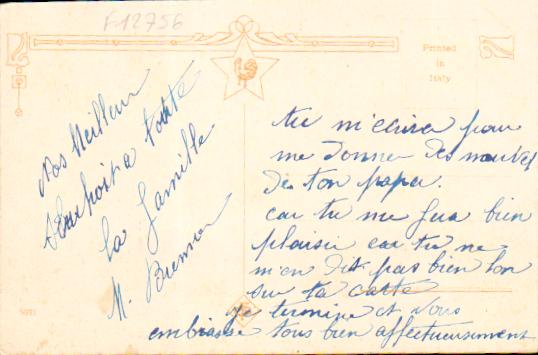 F12756
Printed
in
Italy
Nos Meilleur
Souhait a toute
la famille
M. Brenner
tu m'écrira pour
me donner des nouvel
de ton papa.
car tu me fera bien
plaisir car tu ne
m'en dit pas bien lon
sur ta carte
je termine et vous
embrasse tous bien affectueusement